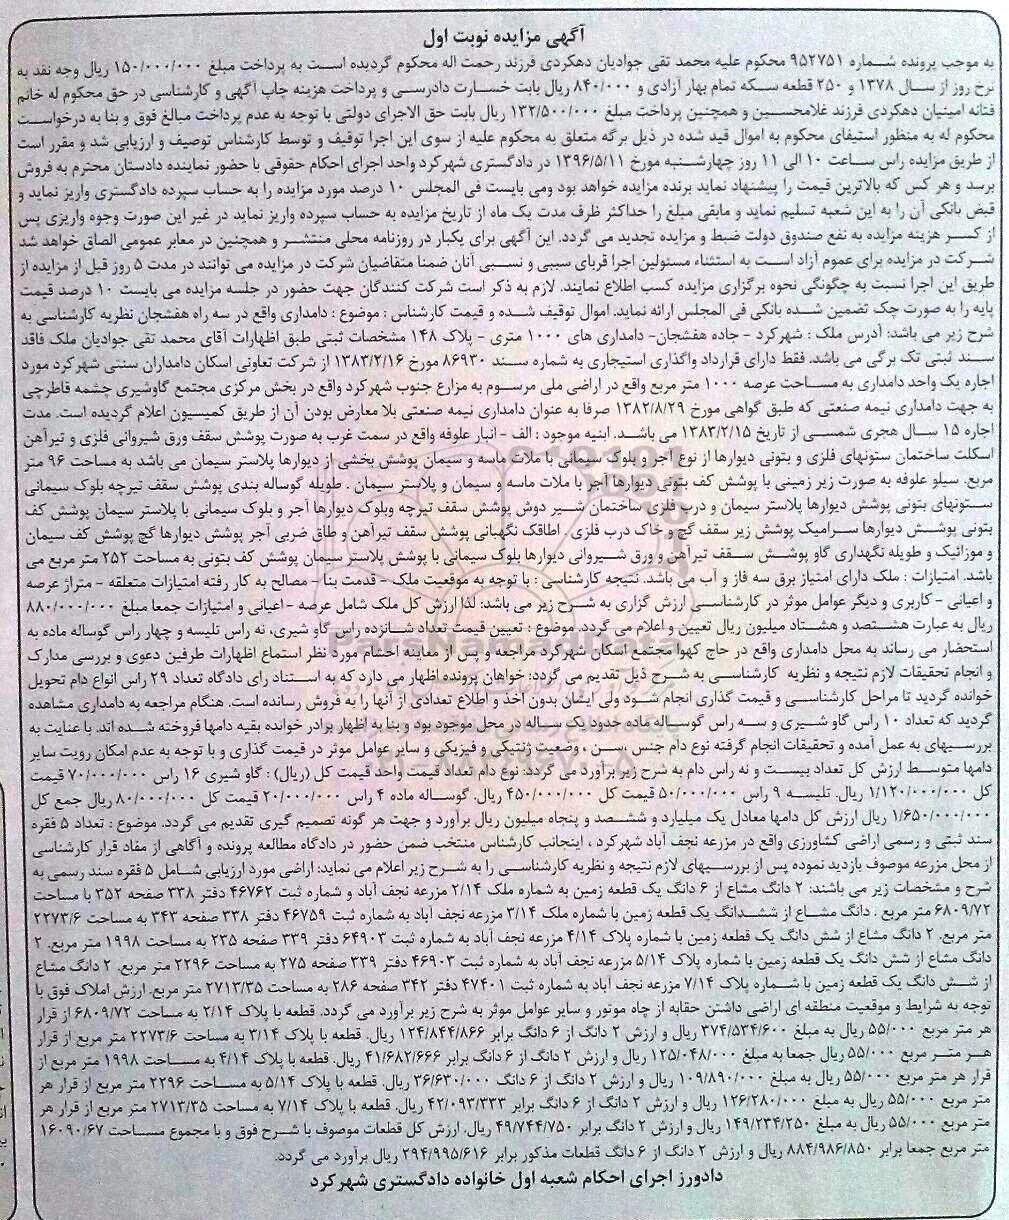 آگهی مزایده نوبت اول
به موجب پرونده شماره ۹۵۲۷۵۱ محکوم علیه محمد تقی جوادیان دهکردی فرزند رحمت اله محکوم گردیده است به پرداخت مبلغ ۱۵۰/۰۰۰/۰۰۰ ریال وجه نقد به
نرخ روز از سال ۱۳۷۸ و ۲۵۰ قطعه سکه تمام بهار آزادی و ۸۴۰/۰۰۰ ریال بابت خسارت دادرسی و پرداخت هزینه چاپ آگهی و کارشناسی در حق محکوم له خانم
فتانه امینیان دهکردی فرزند غلامحسین و همچنین پرداخت مبلغ ۱۳۲/۵۰۰/۰۰۰ ریال بابت حق الاجرای دولتی با توجه به عدم پرداخت مبالغ فوق و بنا به درخواست
محکوم له به منظور استیفای محکوم به اموال قید شده در ذیل برگه متعلق به محکوم علیه از سوی این اجرا توقیف و توسط کارشناس توصیف و ارزیابی شد و مقرر است
از طریق مزایده راس ساعت ۱۰ الی ۱۱ روز چهارشنبه مورخ ۱۳۹۶/۵/۱۱ در دادگستری شهرکرد واحد اجرای احکام حقوقی با حضور نماینده دادستان محترم به فروش
برسد و هر کس که بالاترین قیمت را پیشنهاد نماید برنده مزایده خواهد بود ومی بایست فی المجلس ۱۰ درصد مورد مزایده را به حساب سپرده دادگستری واریز نماید و
قبض بانکی آن را به این شعبه تسلیم نماید و مابقی مبلغ را حداکثر ظرف مدت یک ماه از تاریخ مزایده به حساب سپرده واریز نماید در غیر این صورت وجوه واریزی پس
از کسر هزینه مزایده به نفع صندوق دولت ضبط و مزایده تجدید می گردد. این آگهی برای یکبار در روزنامه محلی منتشر و همچنین در معابر عمومی الصاق خواهد شد
شرکت در مزایده برای عموم آزاد است به استثناء مسئولین اجرا قربای سببی و نسبی آنان ضمنا متقاضیان شرکت در مزایده می توانند در مدت ۵ روز قبل از مزایده از
طریق این اجرا نسبت به چگونگی نحوه برگزاری مزایده کسب اطلاع نمایند. لازم به ذکر است شرکت کنندگان جهت حضور در جلسه مزایده می بایست ۱۰ درصد قیمت
پایه را به صورت چک تضمین شده بانکی فی المجلس ارائه نماید. اموال توقیف شده و قیمت کارشناس : موضوع : دامداری واقع در سه راه هفشجان نظریه کارشناسی به
شرح زیر می باشد: آدرس ملک : شهرکرد - جاده هفشجان- دامداری های ۱۰۰۰ متری - پلاک ۱۴۸ مشخصات ثبتی طبق اظهارات آقای محمد تقی جوادیان ملک فاقد
سند ثبتی تک برگی می باشد. فقط دارای قرارداد واگذاری استیجاری به شماره سند ۸۶۹۳۰ مورخ ۱۳۸۳/۲/۱۶ از شرکت تعاونی اسکان دامداران سنتی شهرکرد مورد
اجاره یک واحد دامداری به مساحت عرصه ۱۰۰۰ متر مربع واقع در اراضی ملی مرسوم به مزارع جنوب شهرکرد واقع در بخش مرکزی مجتمع گاوشیری چشمه قاطرچی
به جهت دامداری نیمه صنعتی که طبق گواهی مورخ ۱۳۸۲/۸/۲۹ صرفا به عنوان دامداری نیمه صنعتی بلا معارض بودن آن از طریق کمیسیون اعلام گردیده است. مدت
اجاره ۱۵ سال هجری شمسی از تاریخ ۱۳۸۳/۲/۱۵ می باشد. ابنیه موجود : الف - انبار علوفه واقع در سمت غرب به صورت پوشش سقف ورق شیروانی فلزی و تیرآهن
اسکلت ساختمان ستونهای فلزی و بتونی دیوارها از نوع آجر و بلوک سیمانی با ملات ماسه و سیمان پوشش بخشی از دیوارها پلاستر سیمان می باشد به مساحت ۹۶ متر
مربع. سیلو علوفه به صورت زیر زمینی با پوشش کف بتونی دیوارها آجر با ملات ماسه و سیمان و پلاستر سیمان . طویله گوساله بندی پوشش سقف تیرچه بلوک سیمانی
ستونهای بتونی پوشش دیوارها پلاستر سیمان و درب فلزی ساختمان شیر دوش پوشش سقف تیرچه وبلوک دیوارها آجر و بلوک سیمانی با پلاستر سیمان پوشش کف
بتونی پوشش دیوارها سرامیک پوشش زیر سقف گچ و خاک درب فلزی . اطاقک نگهبانی پوشش سقف تیرآهن و طاق ضربی آجر پوشش دیوارها گچ پوشش کف سیمان
و موزائیک و طویله نگهداری گاو پوشش سقف تیرآهن و ورق شیروانی دیوارها بلوک سیمانی با پوشش پلاستر سیمان پوشش کف بتونی به مساحت ۲۵۲ متر مربع می
باشد. امتیازات : ملک دارای امتیاز برق سه فاز و آب می باشد. نتیجه کارشناسی : با توجه به موقعیت ملک - قدمت بنا - مصالح به کار رفته امتیازات متعلقه - متراژ عرصه
و اعیانی - کاربری و دیگر عوامل موثر در کارشناسی ارزش گزاری به شرح زیر می باشد: لذا ارزش کل ملک شامل عرصه - اعیانی و امتیازات جمعا مبلغ ۸۸۰/۰۰۰/۰۰۰
ریال به عبارت هشتصد و هشتاد میلیون ریال تعیین و اعلام می گردد. موضوع : تعیین قیمت تعداد شانزده راس گاو شیری، نه راس تلیسه و چهار راس گوساله ماده به
استحضار می رساند به محل دامداری واقع در حاج کهوا مجتمع اسکان شهرکرد مراجعه و پس از معاینه احشام مورد نظر استماع اظهارات طرفین دعوی و بررسی مدارک
و انجام تحقیقات لازم نتیجه و نظریه کارشناسی به شرح ذیل تقدیم می گردد: خواهان پرونده اظهار می دارد که به استناد رای دادگاه تعداد ۲۹ راس انواع دام تحویل
خوانده گردید تا مراحل کارشناسی و قیمت گذاری انجام شود ولی ایشان بدون اخذ و اطلاع تعدادی از آنها را به فروش رسانده است. هنگام مراجعه به دامداری مشاهده
گردید که تعداد ۱۰ راس گاو شیری و سه راس گوساله ماده حدود یک ساله در محل موجود بود و بنا به اظهار برادر خوانده بقیه دامها فروخته شده اند. با عنایت به
بررسیهای به عمل آمده و تحقیقات انجام گرفته نوع دام جنس ،سن ، وضعیت ژنتیکی و فیزیکی و سایر عوامل موثر در قیمت گذاری و با توجه به عدم امکان رویت سایر
دامها متوسط ارزش کل تعداد بیست و نه راس دام به شرح زیر برآورد می گردد: نوع دام تعداد قیمت واحد قیمت کل (ریال) : گاو شیری ۱۶ راس ۷۰/۰۰۰/۰۰۰ قیمت
کل ۱/۱۲۰/۰۰۰/۰۰۰ ریال. تلیسه ۹ راس ۵۰/۰۰۰/۰۰۰ قیمت کل ۴۵۰/۰۰۰/۰۰۰ ریال. گوساله ماده ۴ راس ۲۰/۰۰۰/۰۰۰ قیمت کل ۸۰/۰۰۰/۰۰۰ ریال جمع کل
۱/۶۵۰/۰۰۰/۰۰۰ ریال ارزش کل دامها معادل یک میلیارد و ششصد و پنجاه میلیون ریال برآورد و جهت هر گونه تصمیم گیری تقدیم می گردد. موضوع : تعداد ۵ فقره
سند ثبتی و رسمی اراضی کشاورزی واقع در مزرعه نجف آباد شهرکرد ، اینجانب کارشناس منتخب ضمن حضور در دادگاه مطالعه پرونده و آگاهی از مفاد قرار کارشناسی
از محل مزرعه موصوف بازدید نموده پس از بررسیهای لازم نتیجه و نظریه کارشناسی را به شرح زیر اعلام می نماید: اراضی مورد ارزیابی شامل ۵ فقره سند رسمی به
شرح و مشخصات زیر می باشند: ۲ دانگ مشاع از ۶ دانگ یک قطعه زمین به شماره ملک ۲/۱۴ مزرعه نجف آباد و شماره ثبت ۴۶۷۶۲ دفتر ۳۳۸ صفحه ۳۵۲ با مساحت
۶۸۰۹/۷۲ متر مربع . دانگ مشاع از ششدانگ یک قطعه زمین با شماره ملک ۳/۱۴ مزرعه نجف آباد به شماره ثبت ۴۶۷۵۹ دفتر ۳۳۸ صفحه ۳۴۳ به مساحت ۲۲۷۳/۶
متر مربع. ۲ دانگ مشاع از شش دانگ یک قطعه زمین با شماره پلاک ۴/۱۴ مزرعه نجف آباد به شماره ثبت ۶۴۹۰۳ دفتر ۳۳۹ صفحه ۲۳۵ به مساحت ۱۹۹۸ متر مربع. ۲
دانگ مشاع از شش دانگ یک قطعه زمین با شماره پلاک ۵/۱۴ مزرعه نجف آباد به شماره ثبت ۴۶۹۰۳ دفتر ۳۳۹ صفحه ۲۷۵ به مساحت ۲۲۹۶ متر مربع. ۲ دانگ مشاع
از شش دانگ یک قطعه زمین با شماره پلاک ۷/۱۴ مزرعه نجف آباد به شماره ثبت ۴۷۴۰۱ دفتر ۳۴۲ صفحه ۲۸۶ به مساحت ۲۷۱۳/۳۵ متر مربع. ارزش املاک فوق با
توجه به شرایط و موقعیت منطقه ای اراضی داشتن حقابه از چاه موتور و سایر عوامل موثر به شرح زیر برآورد می گردد. قطعه با پلاک ۲/۱۴ به مساحت ۶۸۰۹/۷۲ از قرار
هر متر مربع ۵۵/۰۰۰ ریال به مبلغ ۳۷۴/۵۳۴/۶۰۰ ریال و ارزش ۲ دانگ از ۶ دانگ برابر ۱۲۴/۸۴۴/۸۶۶ ریال. قطعه با پلاک ۳/۱۴ به مساحت ۲۲۷۳/۶ متر مربع از قرار
هر متر مربع ۵۵/۰۰۰ ریال جمعا به مبلغ ۱۲۵/۰۴۸/۰۰۰ ریال و ارزش ۲ دانگ از ۶ دانگ برابر ۴۱/۶۸۲/۶۶۶ ریال. قطعه با پلاک ۴/۱۴ به مساحت ۱۹۹۸ متر مربع از
قرار هر متر مربع ۵۵/۰۰۰ ریال به مبلغ ۱۰۹/۸۹۰/۰۰۰ ریال و ارزش ۲ دانگ از ۶ دانگ ۳۶/۶۳۰/۰۰۰ ریال. قطعه با پلاک ۵/۱۴ به مساحت ۲۲۹۶ متر مربع از قرار هر
متر مربع ۵۵/۰۰۰ ریال به مبلغ ۱۲۶/۲۸۰/۰۰۰ ریال و ارزش ۲ دانگ از ۶ دانگ برابر ۴۲/۰۹۳/۳۳۳ ریال. قطعه با پلاک ۷/۱۴ به مساحت ۲۷۱۳/۳۵ متر مربع از قرار هر
متر مربع ۵۵/۰۰۰ ریال به مبلغ ۱۴۹/۲۳۴/۲۵۰ ریال و ارزش ۲ دانگ برابر ۴۹/۷۴۴/۷۵۰ ریال. ارزش کل قطعات موصوف با شرح فوق و با مجموع مساحت ۱۶۰۹۰/۶۷
متر مربع جمعا برابر ۸۸۴/۹۸۶/۸۵۰ ریال و ارزش ۲ دانگ از ۶ دانگ قطعات مذکور برابر ۲۹۴/۹۹۵/۶۱۶ ریال برآورد می گردد.
دادورز اجرای احکام شعبه اول خانواده دادگستری شهرکرد